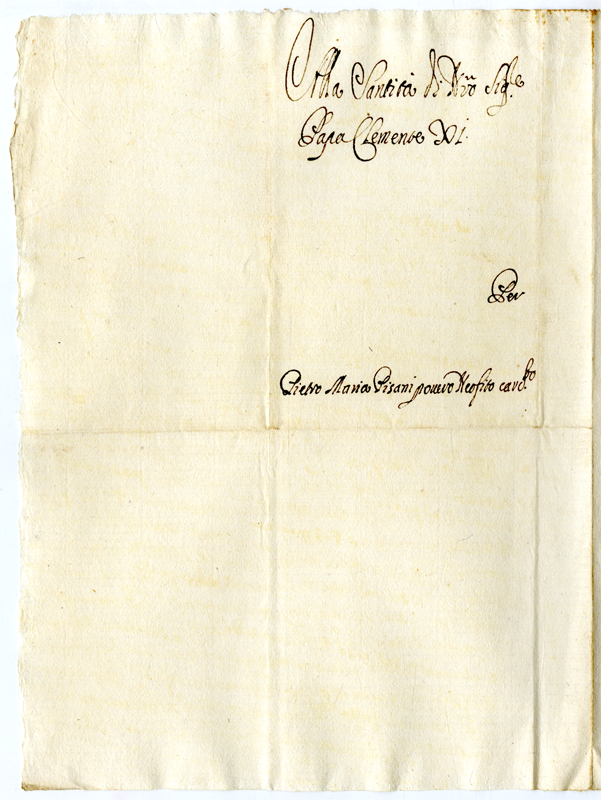 Alla Santità di Nro Sigre
Papa Clemente XI.
Per
Pietro Maria Pisani povero Neofito card.to